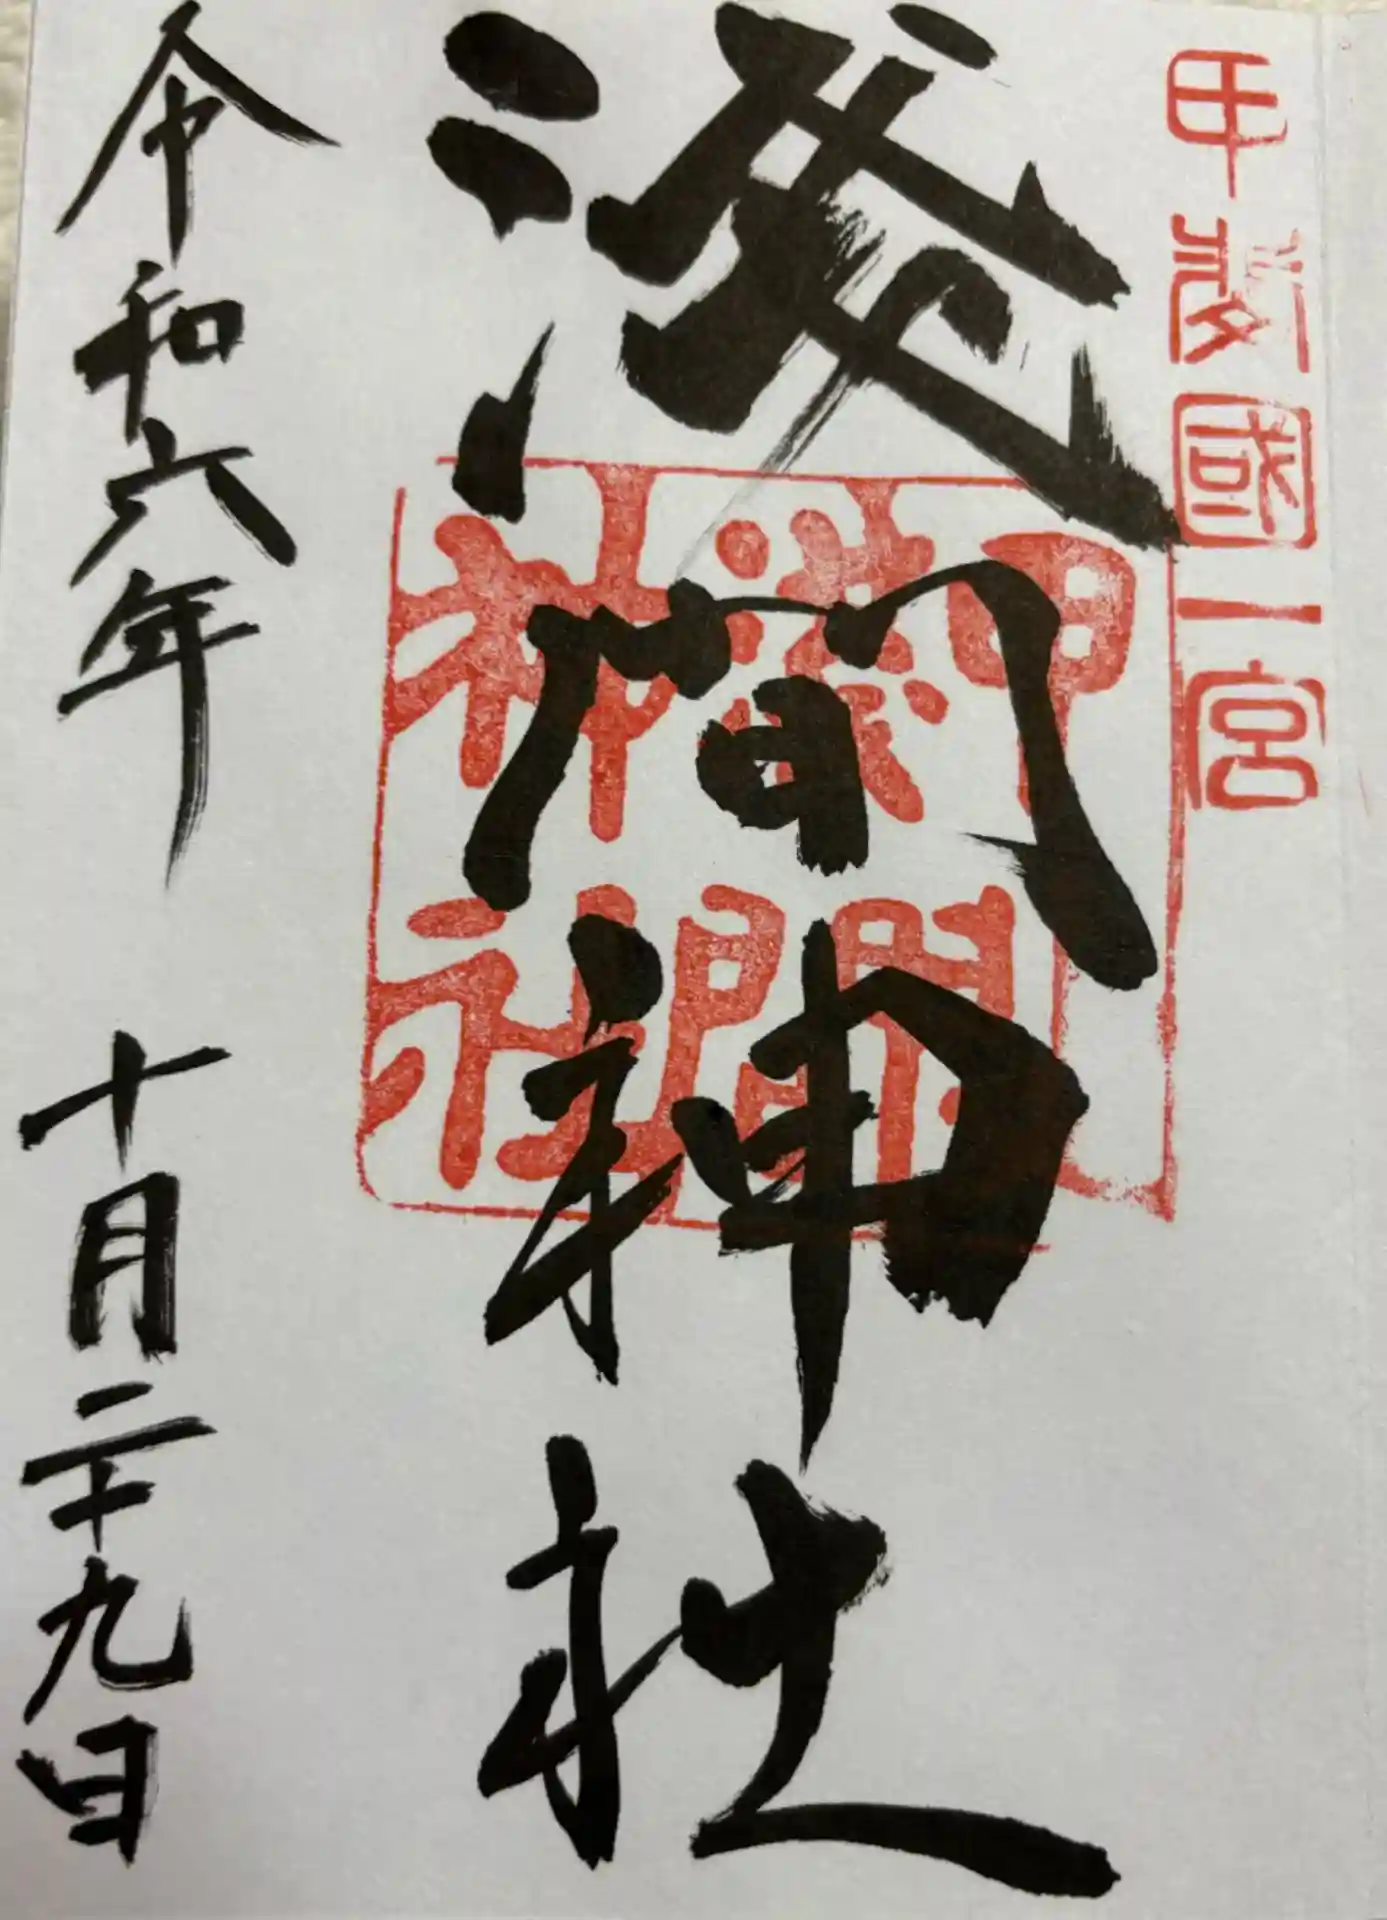 甲斐國一宮
浅間神社
淺間
神社
令和六年 十月二十九日